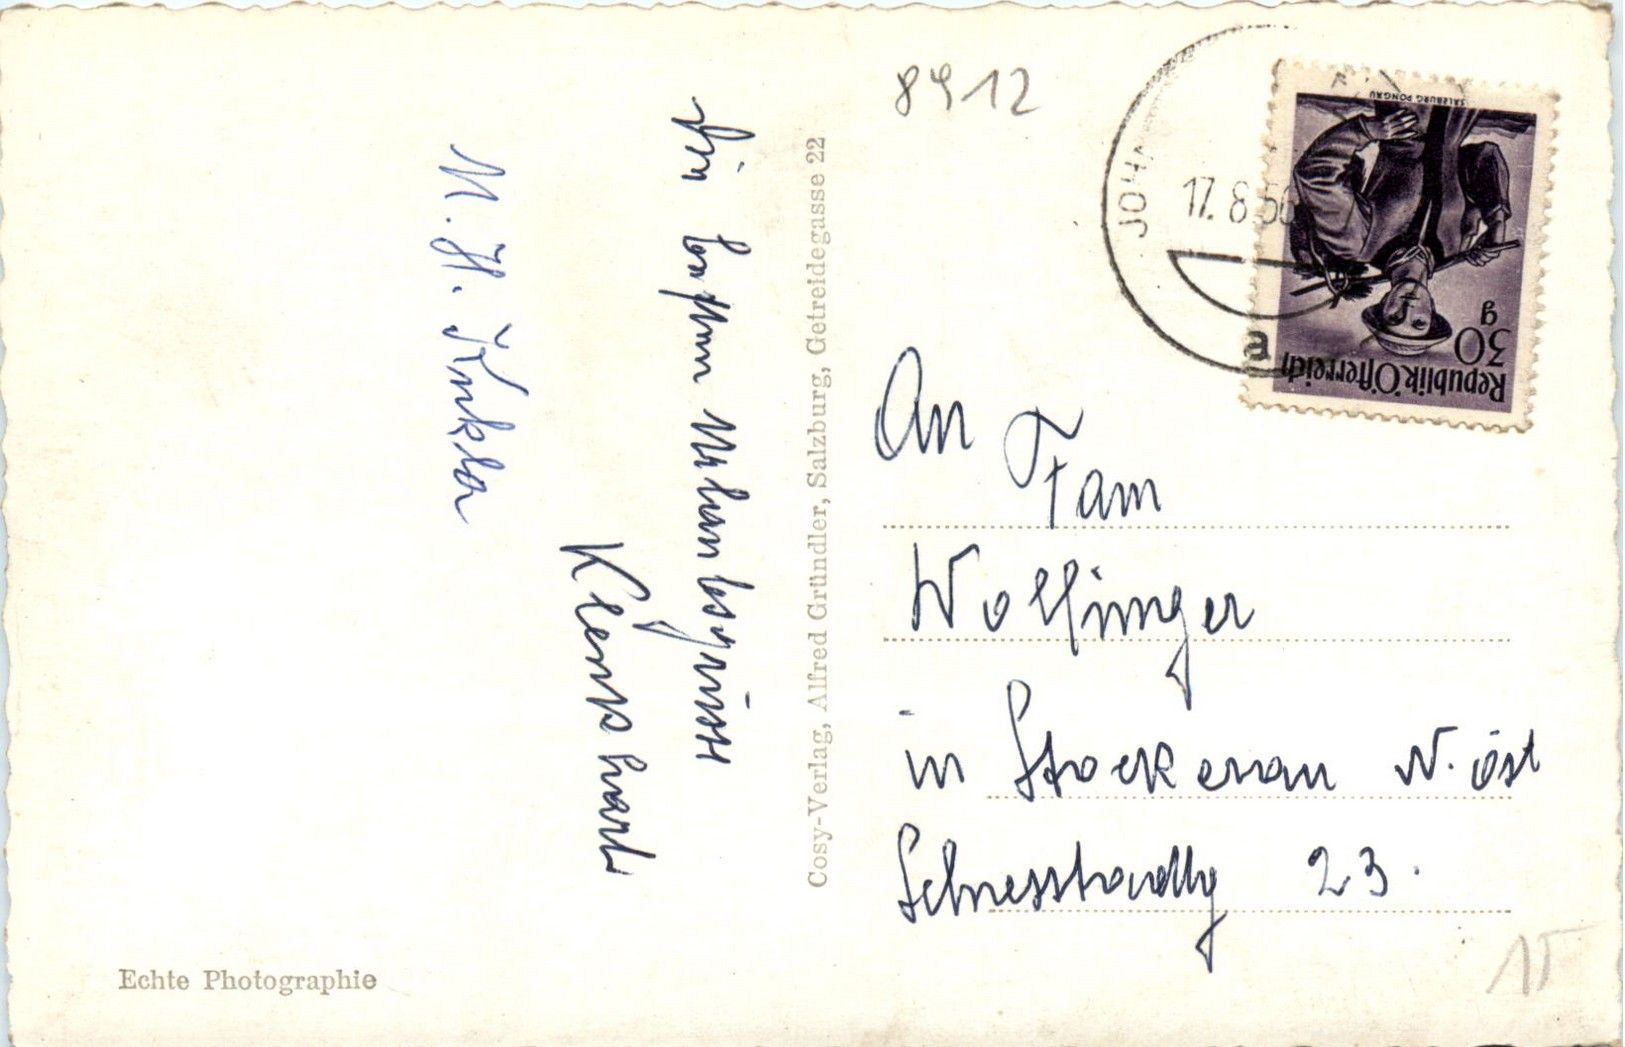 8912
JOH
17. 8. 56
a
SALZBURG PONGAU
30
g
Republik Österreich
An Fam
Wolfinger
in Stockerau N. öst
23.
Cosy-Verlag, Alfred Gründler, Salzburg, Getreidegasse 22
Die besten Urlaubsgrüsse
M. H.
Echte Photographie
15